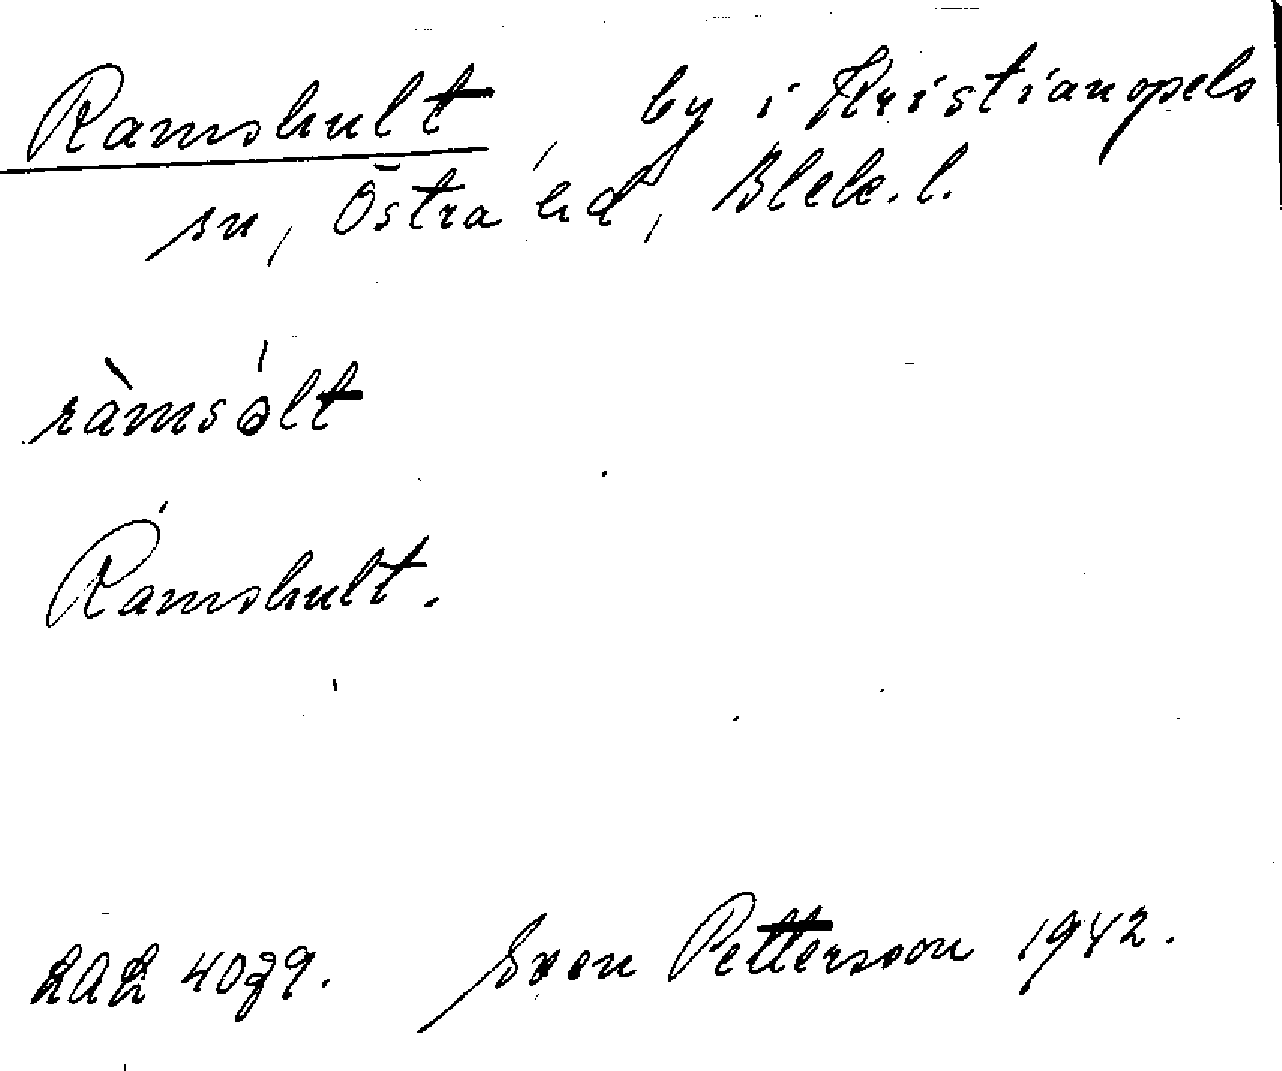 Ramshult, by i Kristianopels
sn, Östra hd, Blek. l.
ràmsólt
Ramshult.
LAL 4079. Sven Pettersson 1942.